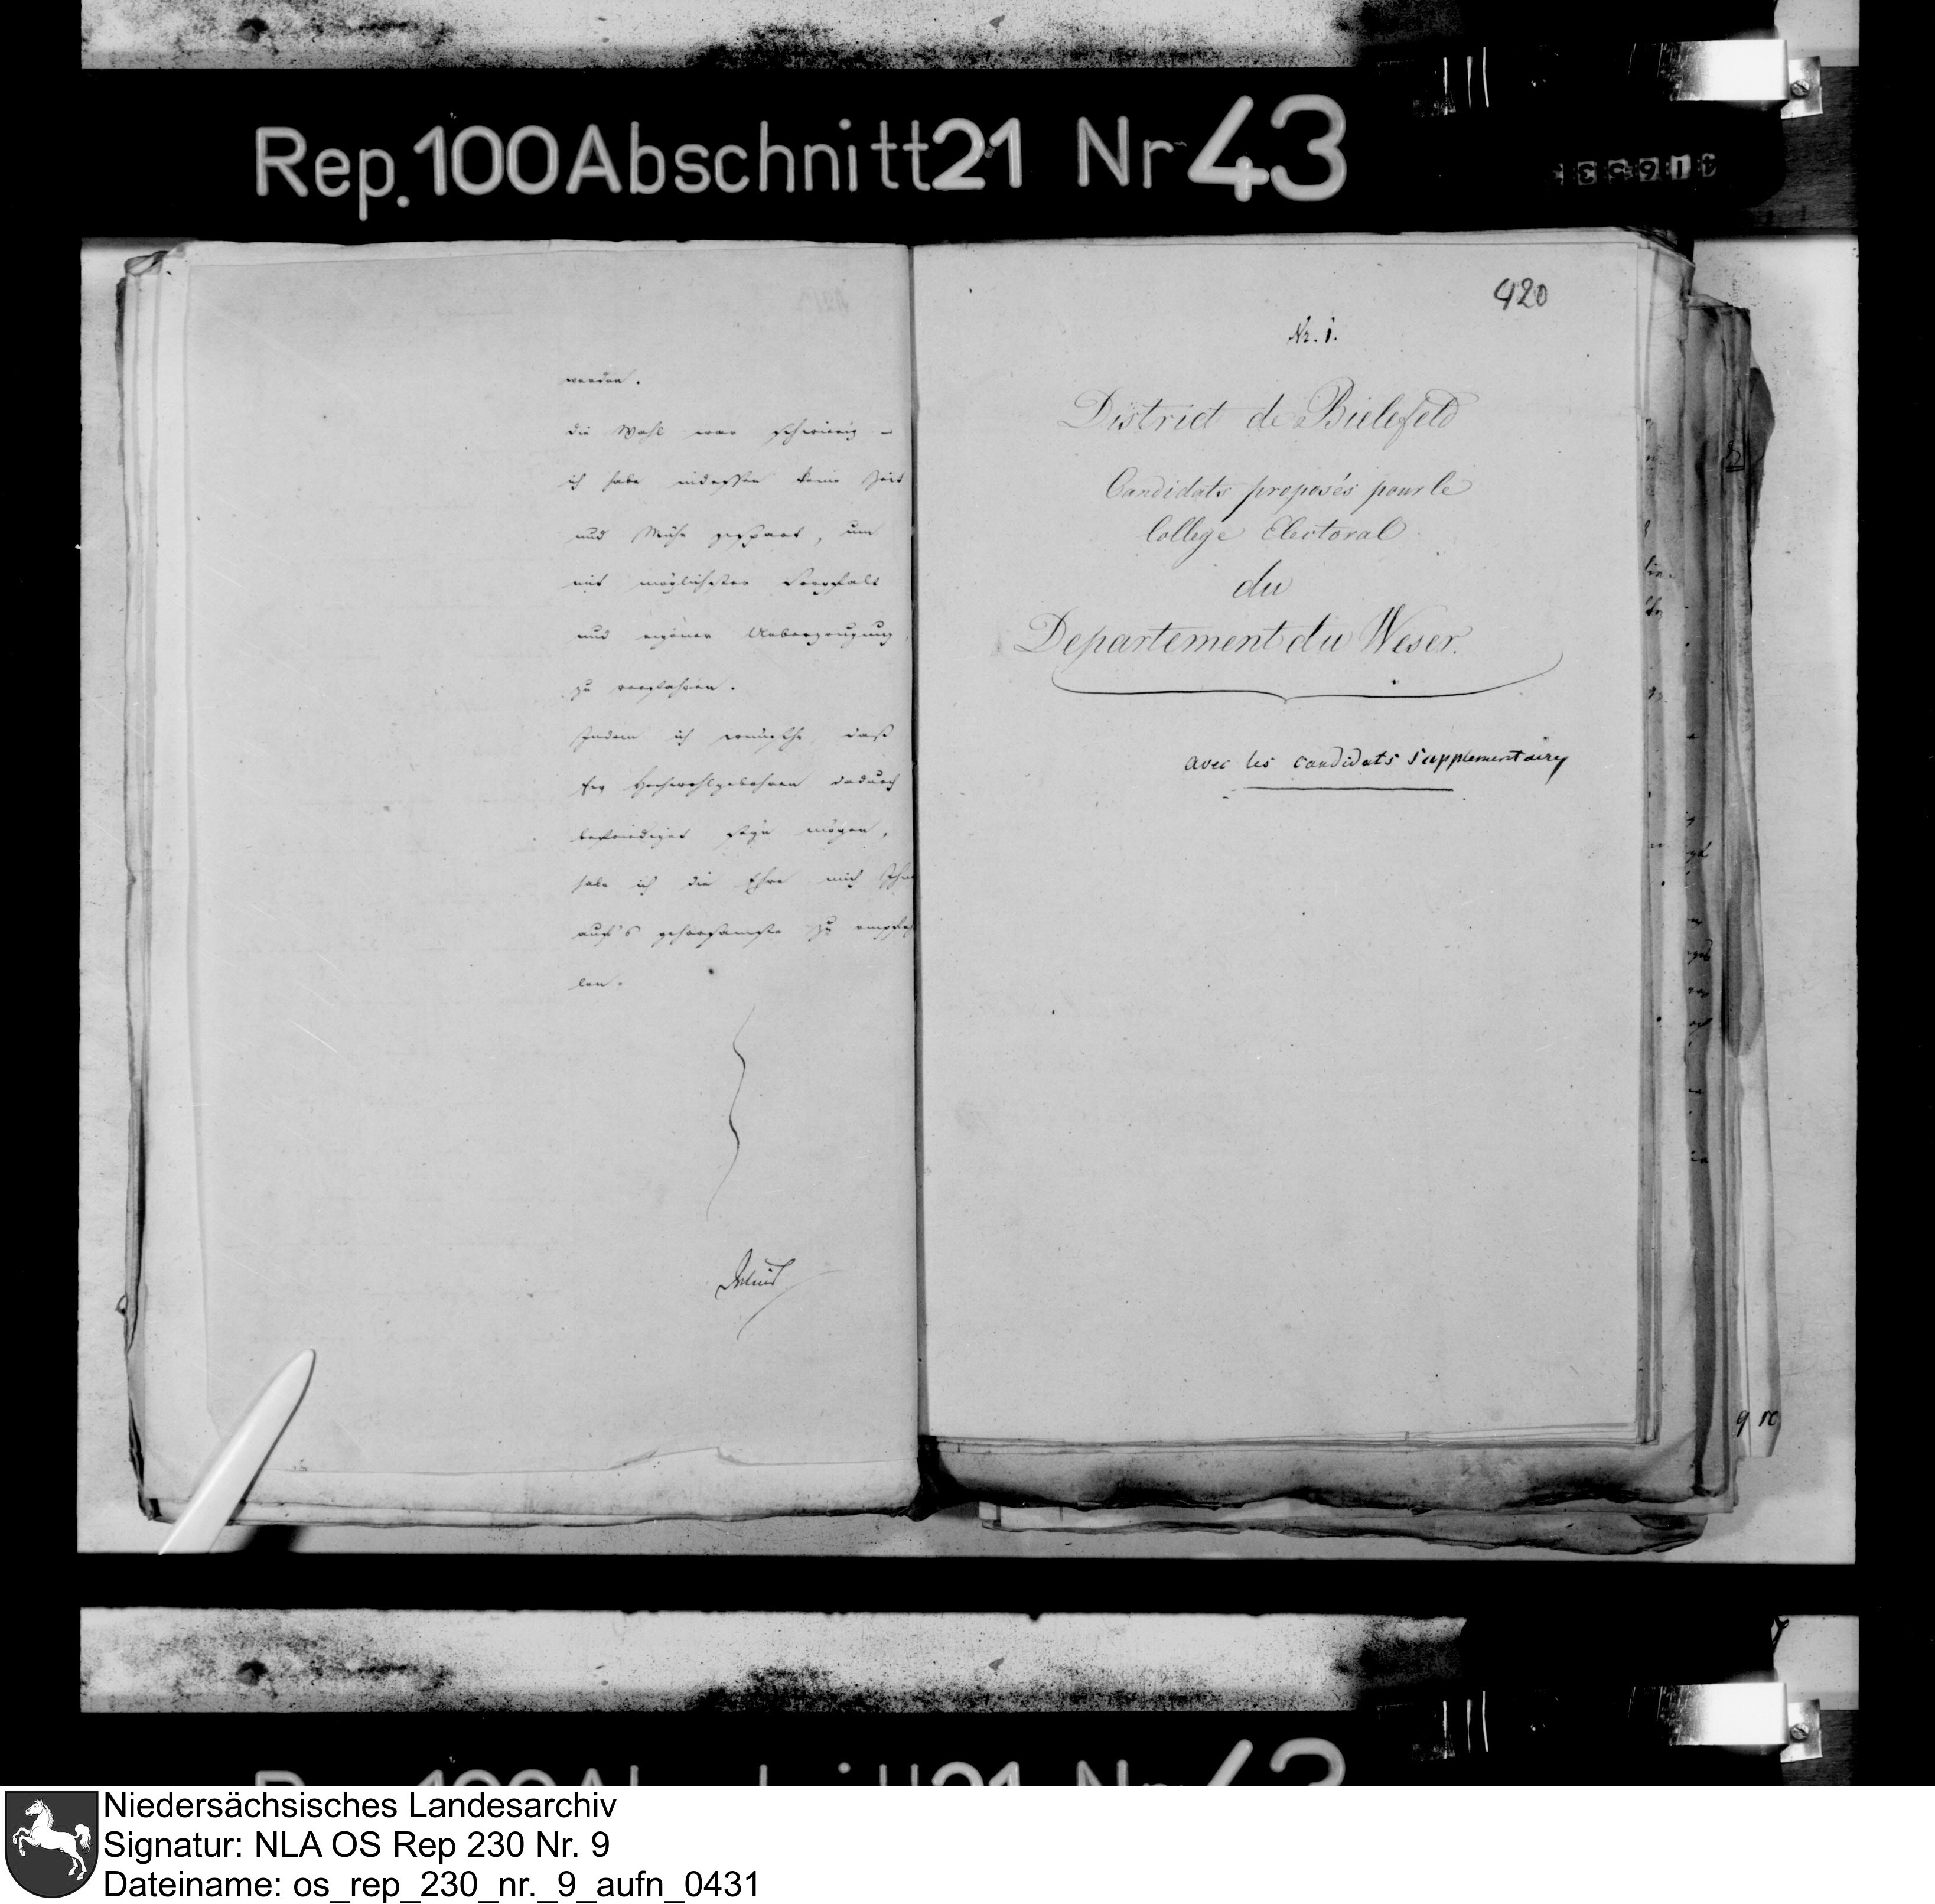 Rep. 100 Abschnitt 21 Nr 43
werden.
die Wahl war schwierig –
ich habe indessen keine Zeit
und Mühe gespart, um
mit möglichster Sorgfalt
und eigener Ueberzeugung
zu verfahren.
Indem ich wünsche, daß
Ew Hochwohlgebohren dadurch
befriediget seyn mögen,
habe ich die Ehre mich Ihnen
auf's gehorsamste zu empfeh
len.
420
Nr. 1.
District de Bielefeld
Candidats proposés pour le
College Electoral
du
Departement du Weser.
avec les candidats supplementaires
Niedersächsisches Landesarchiv
Signatur: NLA OS Rep 230 Nr. 9
Dateiname: os_rep_230_nr._9_aufn_0431